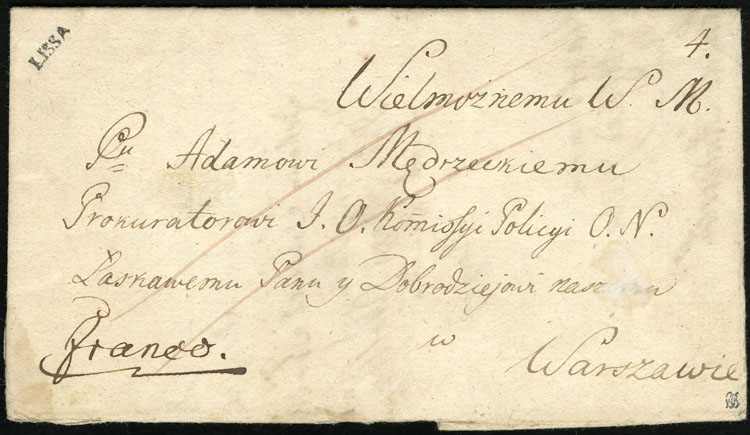 LISSA
4.
Wielmoznemu W. M.
Pu Adamowi Mędrzeckiemu
Prokuratorowi J. O. Kom̃issyi Policyi O. N.
Laskawemu Panu y Dobrodziejowi naszemu
franco.
w
Warszawie